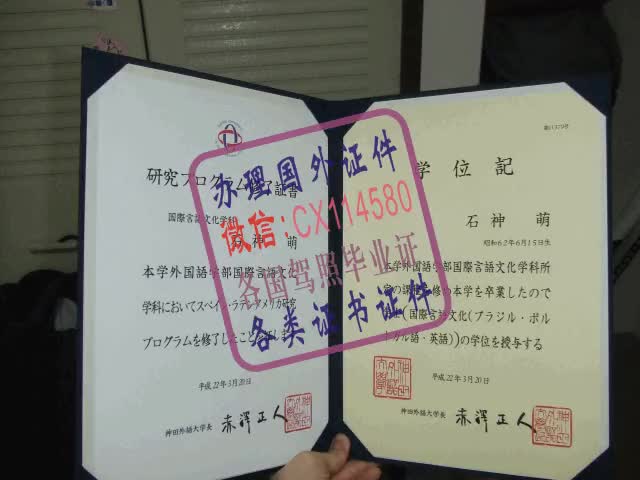 研究プログラム修了証書
国際言語文化学科
石神 萌
本学外国語学部国際言語文化
学科においてスペイン・ラテンアメリカ研究
プログラムを修了したことを証します
平成22年3月20日
神田外語大学長 赤澤正人
学位記
石神 萌
昭和62年6月15日生
本学外国語学部国際言語文化学科所
定の課程を修め本学を卒業したので
学士(国際言語文化(ブラジル・ポル
トガル語・英語))の学位を授与する
平成22年3月20日
神田外語大学長 赤澤正人
办理国外证件
微信:CX114580
各国驾照毕业证
各类证书证件